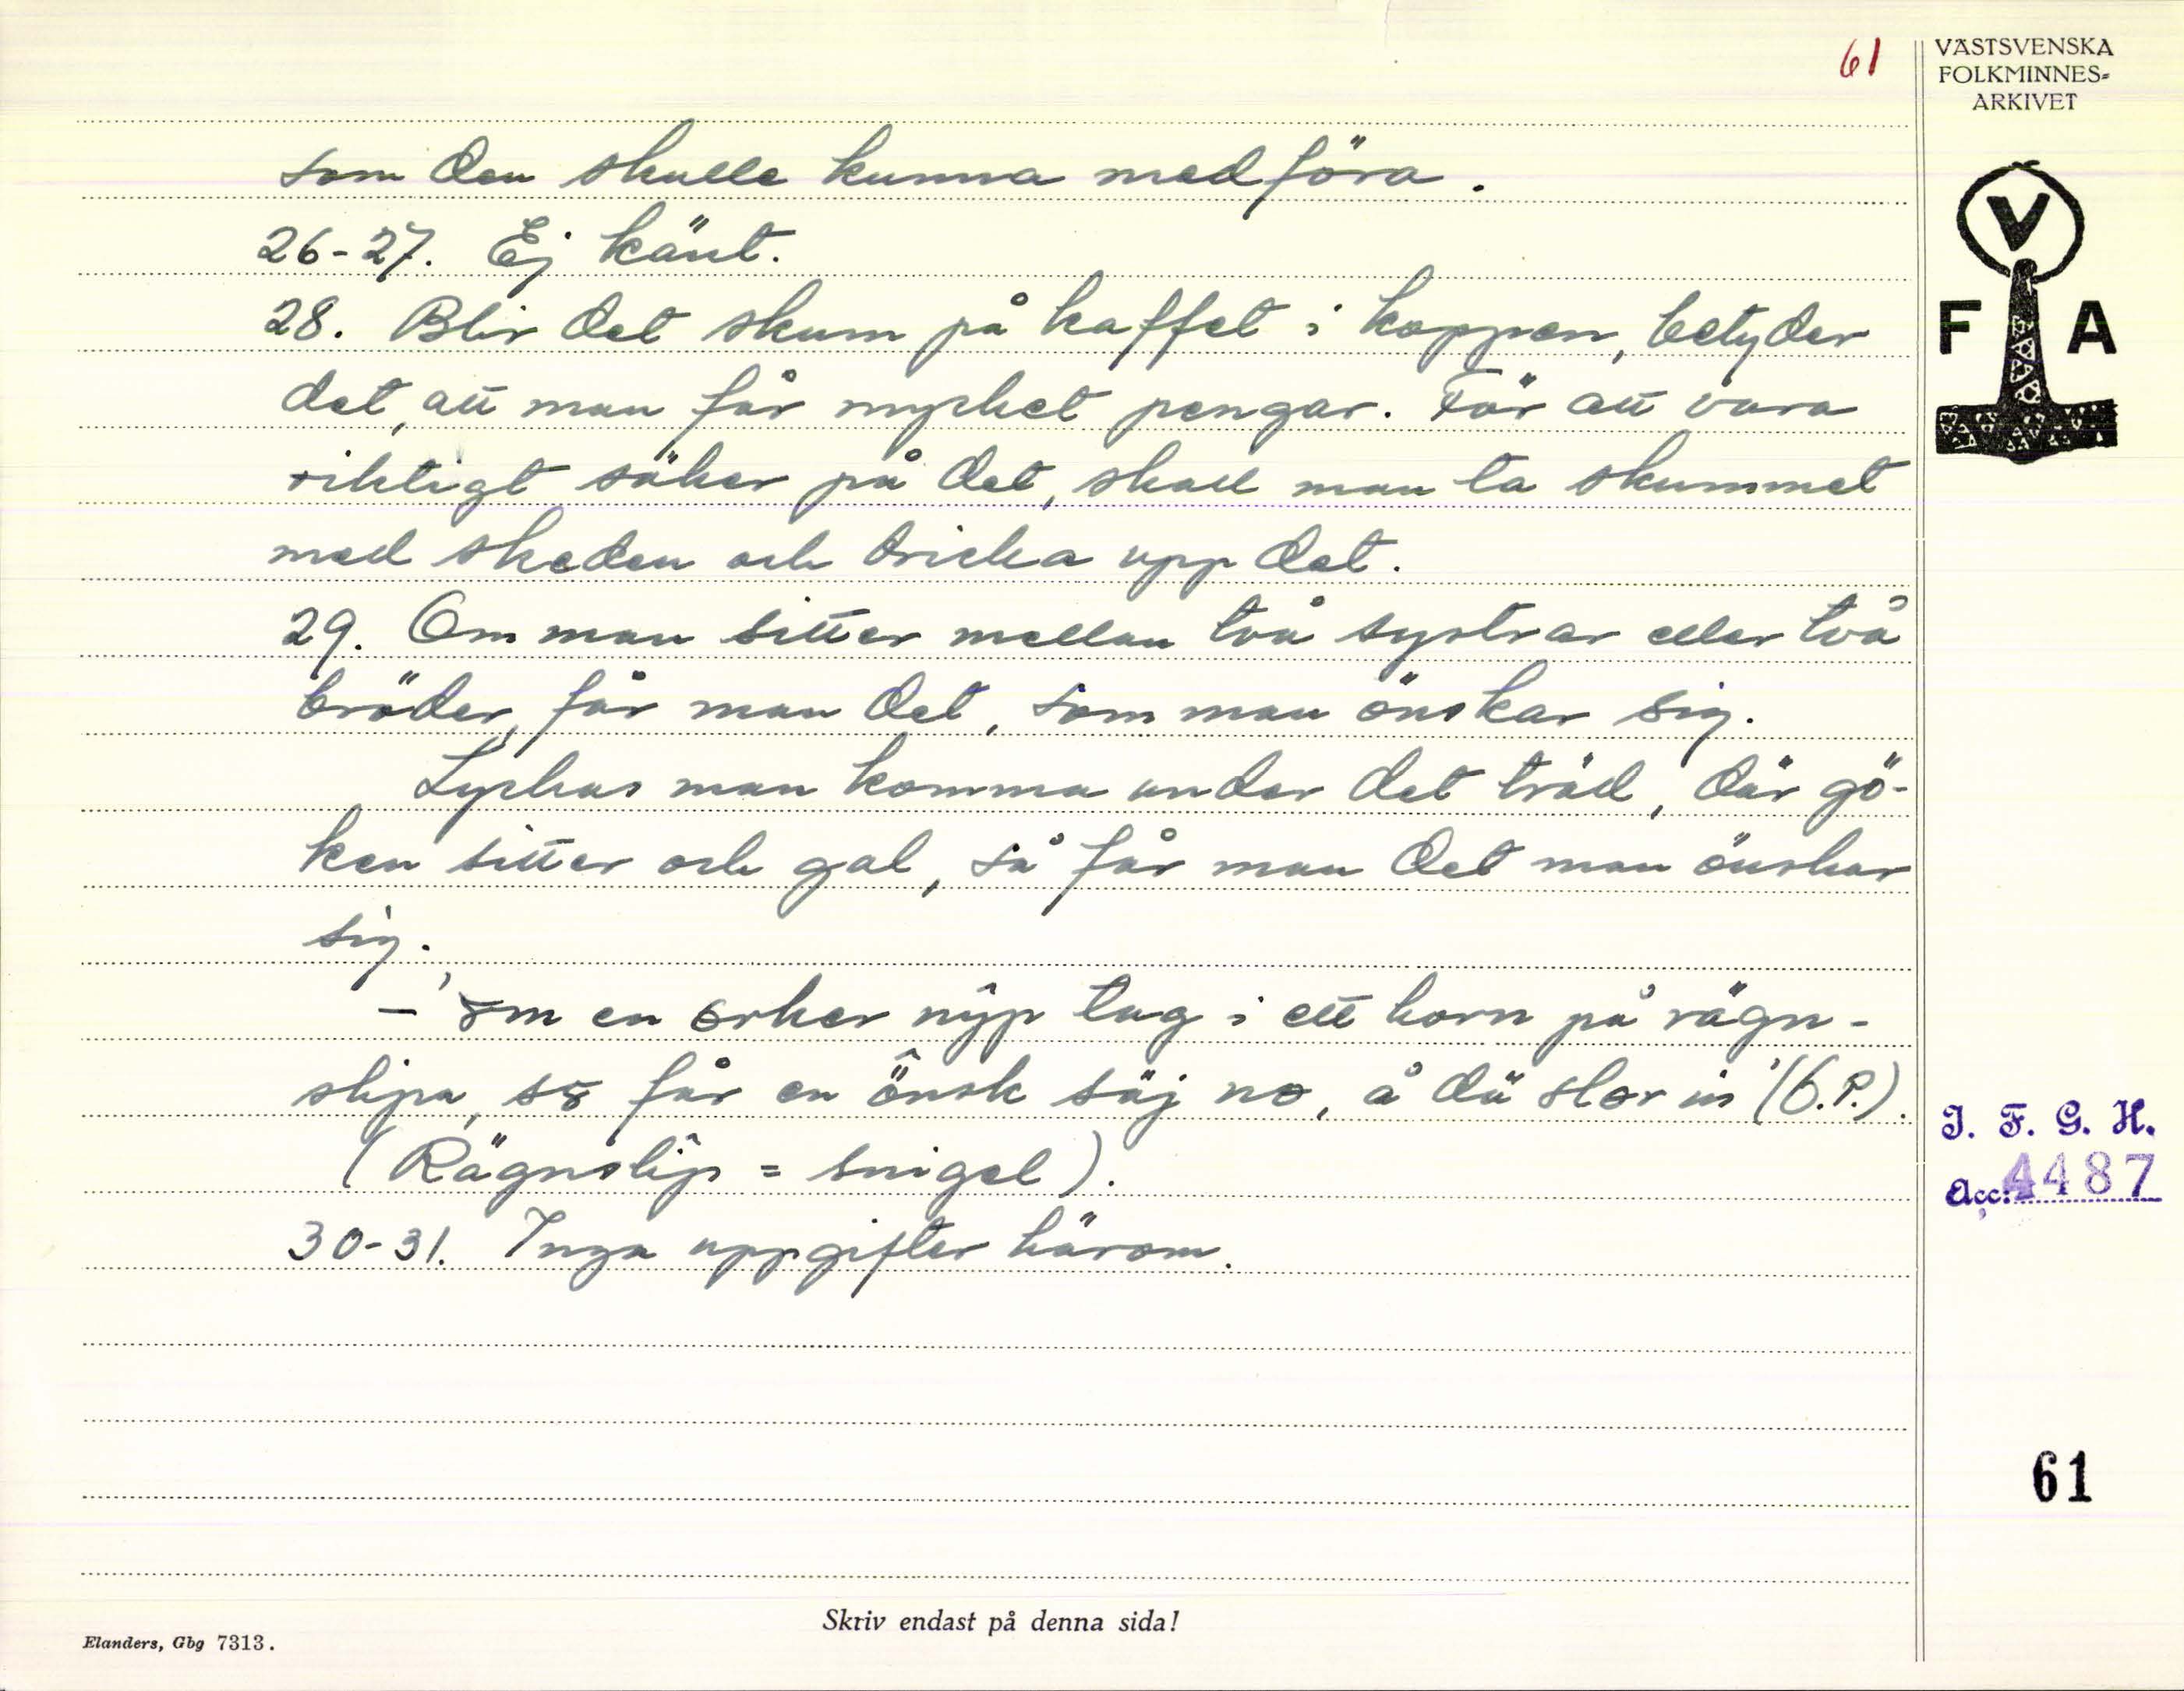 61
VÄSTSVENSKA
FOLKMINNES=
ARKIVET
V
F A
som den skulle kunna medföra.
26-27. Ej känt.
28. Blir det skum på kaffet i koppen, betyder
det, att man får mycket pengar. För att vara
riktigt säker på det, skall man ta skummet
med skeden och dricka upp det.
29. Om man sitter mellan två systrar eller två
bröder, får man det, som man önskar sig.
Lyckas man komma under det träd, där gö-
ken sitter och gal, så får man det man önskar
sig.
– 'om en orker nyp tag i ett horn på rägn-
slipa, så får en önsk säj no, å dä slor in' (G.P.).
(Rägnslip = snigel).
30-31. Inga uppgifter härom.
I. F. G. H.
Acc: 4487
61
Skriv endast på denna sida!
Elanders, Gbg 7313.